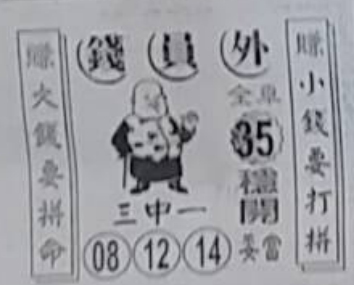 錢 員 外
賺小錢要打拼
賺大錢要拼命
全車
35
穩
開
三中一
08 12 14
當